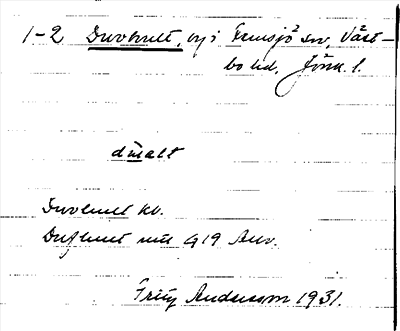 1-2 Duvhult, by i Femsjö sn, Väst-
bo hd, Jönk. l.
dúalt
Duvhult kb.
Dufhult mtl 919 Anv.
Fritz Andersson 1931.